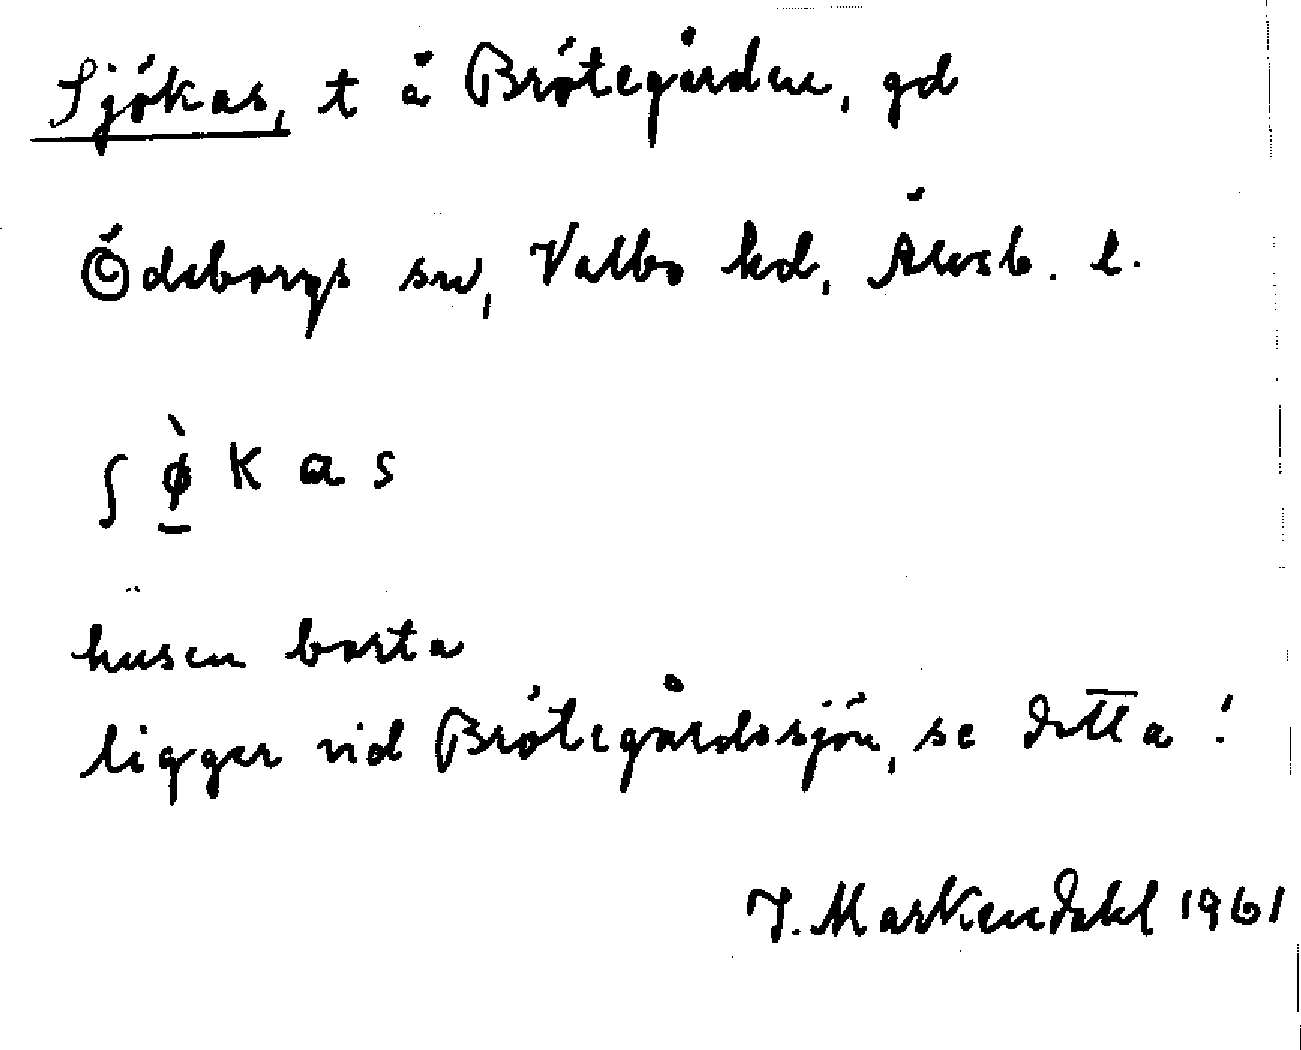 Sjökas, t å Brötegården, gd
Ödeborgs sn, Valbo hd, Älvsb. l.
ʃ ø̱̀ k a s
husen borta
ligger vid Brötegårdssjön, se detta!
J. Markendahl 1961